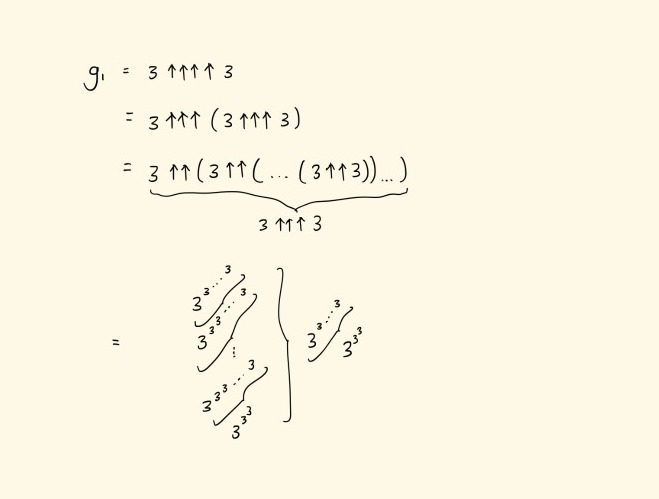 g₁ = 3 ↑↑↑↑ 3
= 3 ↑↑↑ (3 ↑↑↑ 3)
= 3 ↑↑ (3 ↑↑ (... (3 ↑↑ 3))...)
3 ↑↑↑ 3
3^3^⋰^3
3^3^3^⋰^3
⋮
= 3^3^⋰^3 3^3^3
3^3^3^⋰^3
3^3^3